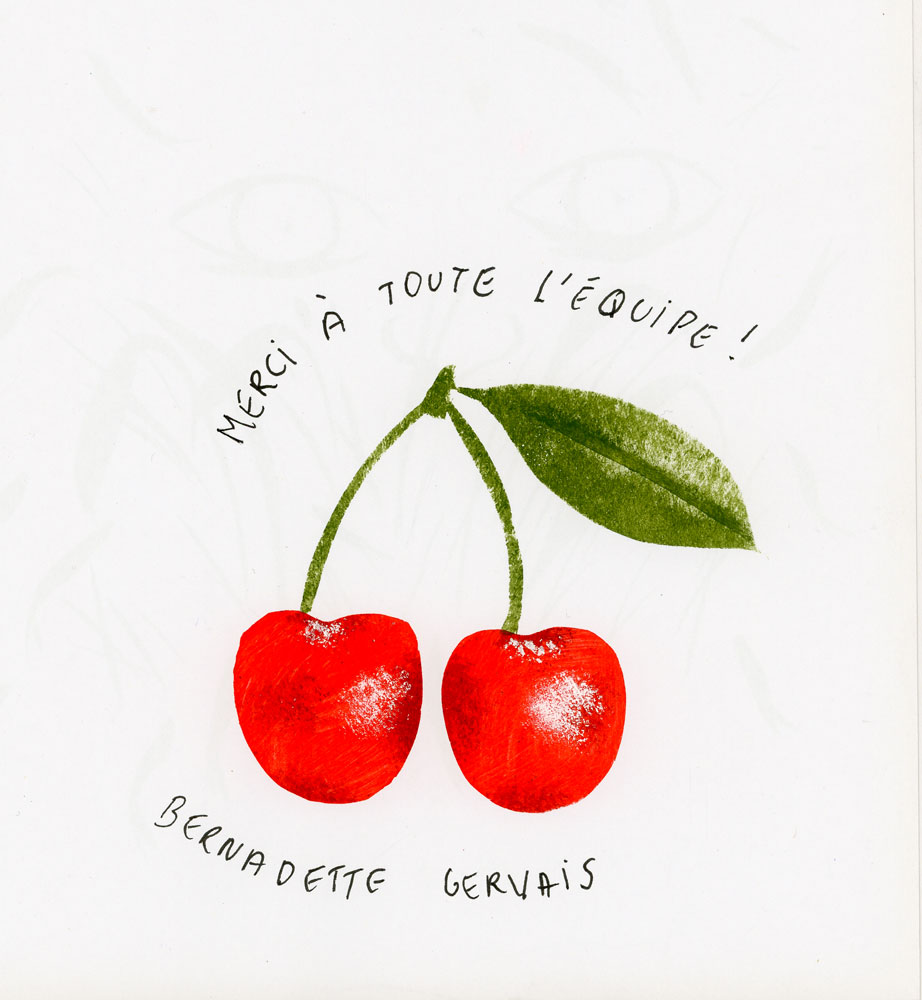 MERCI À TOUTE L'ÉQUIPE !
BERNADETTE GERVAIS